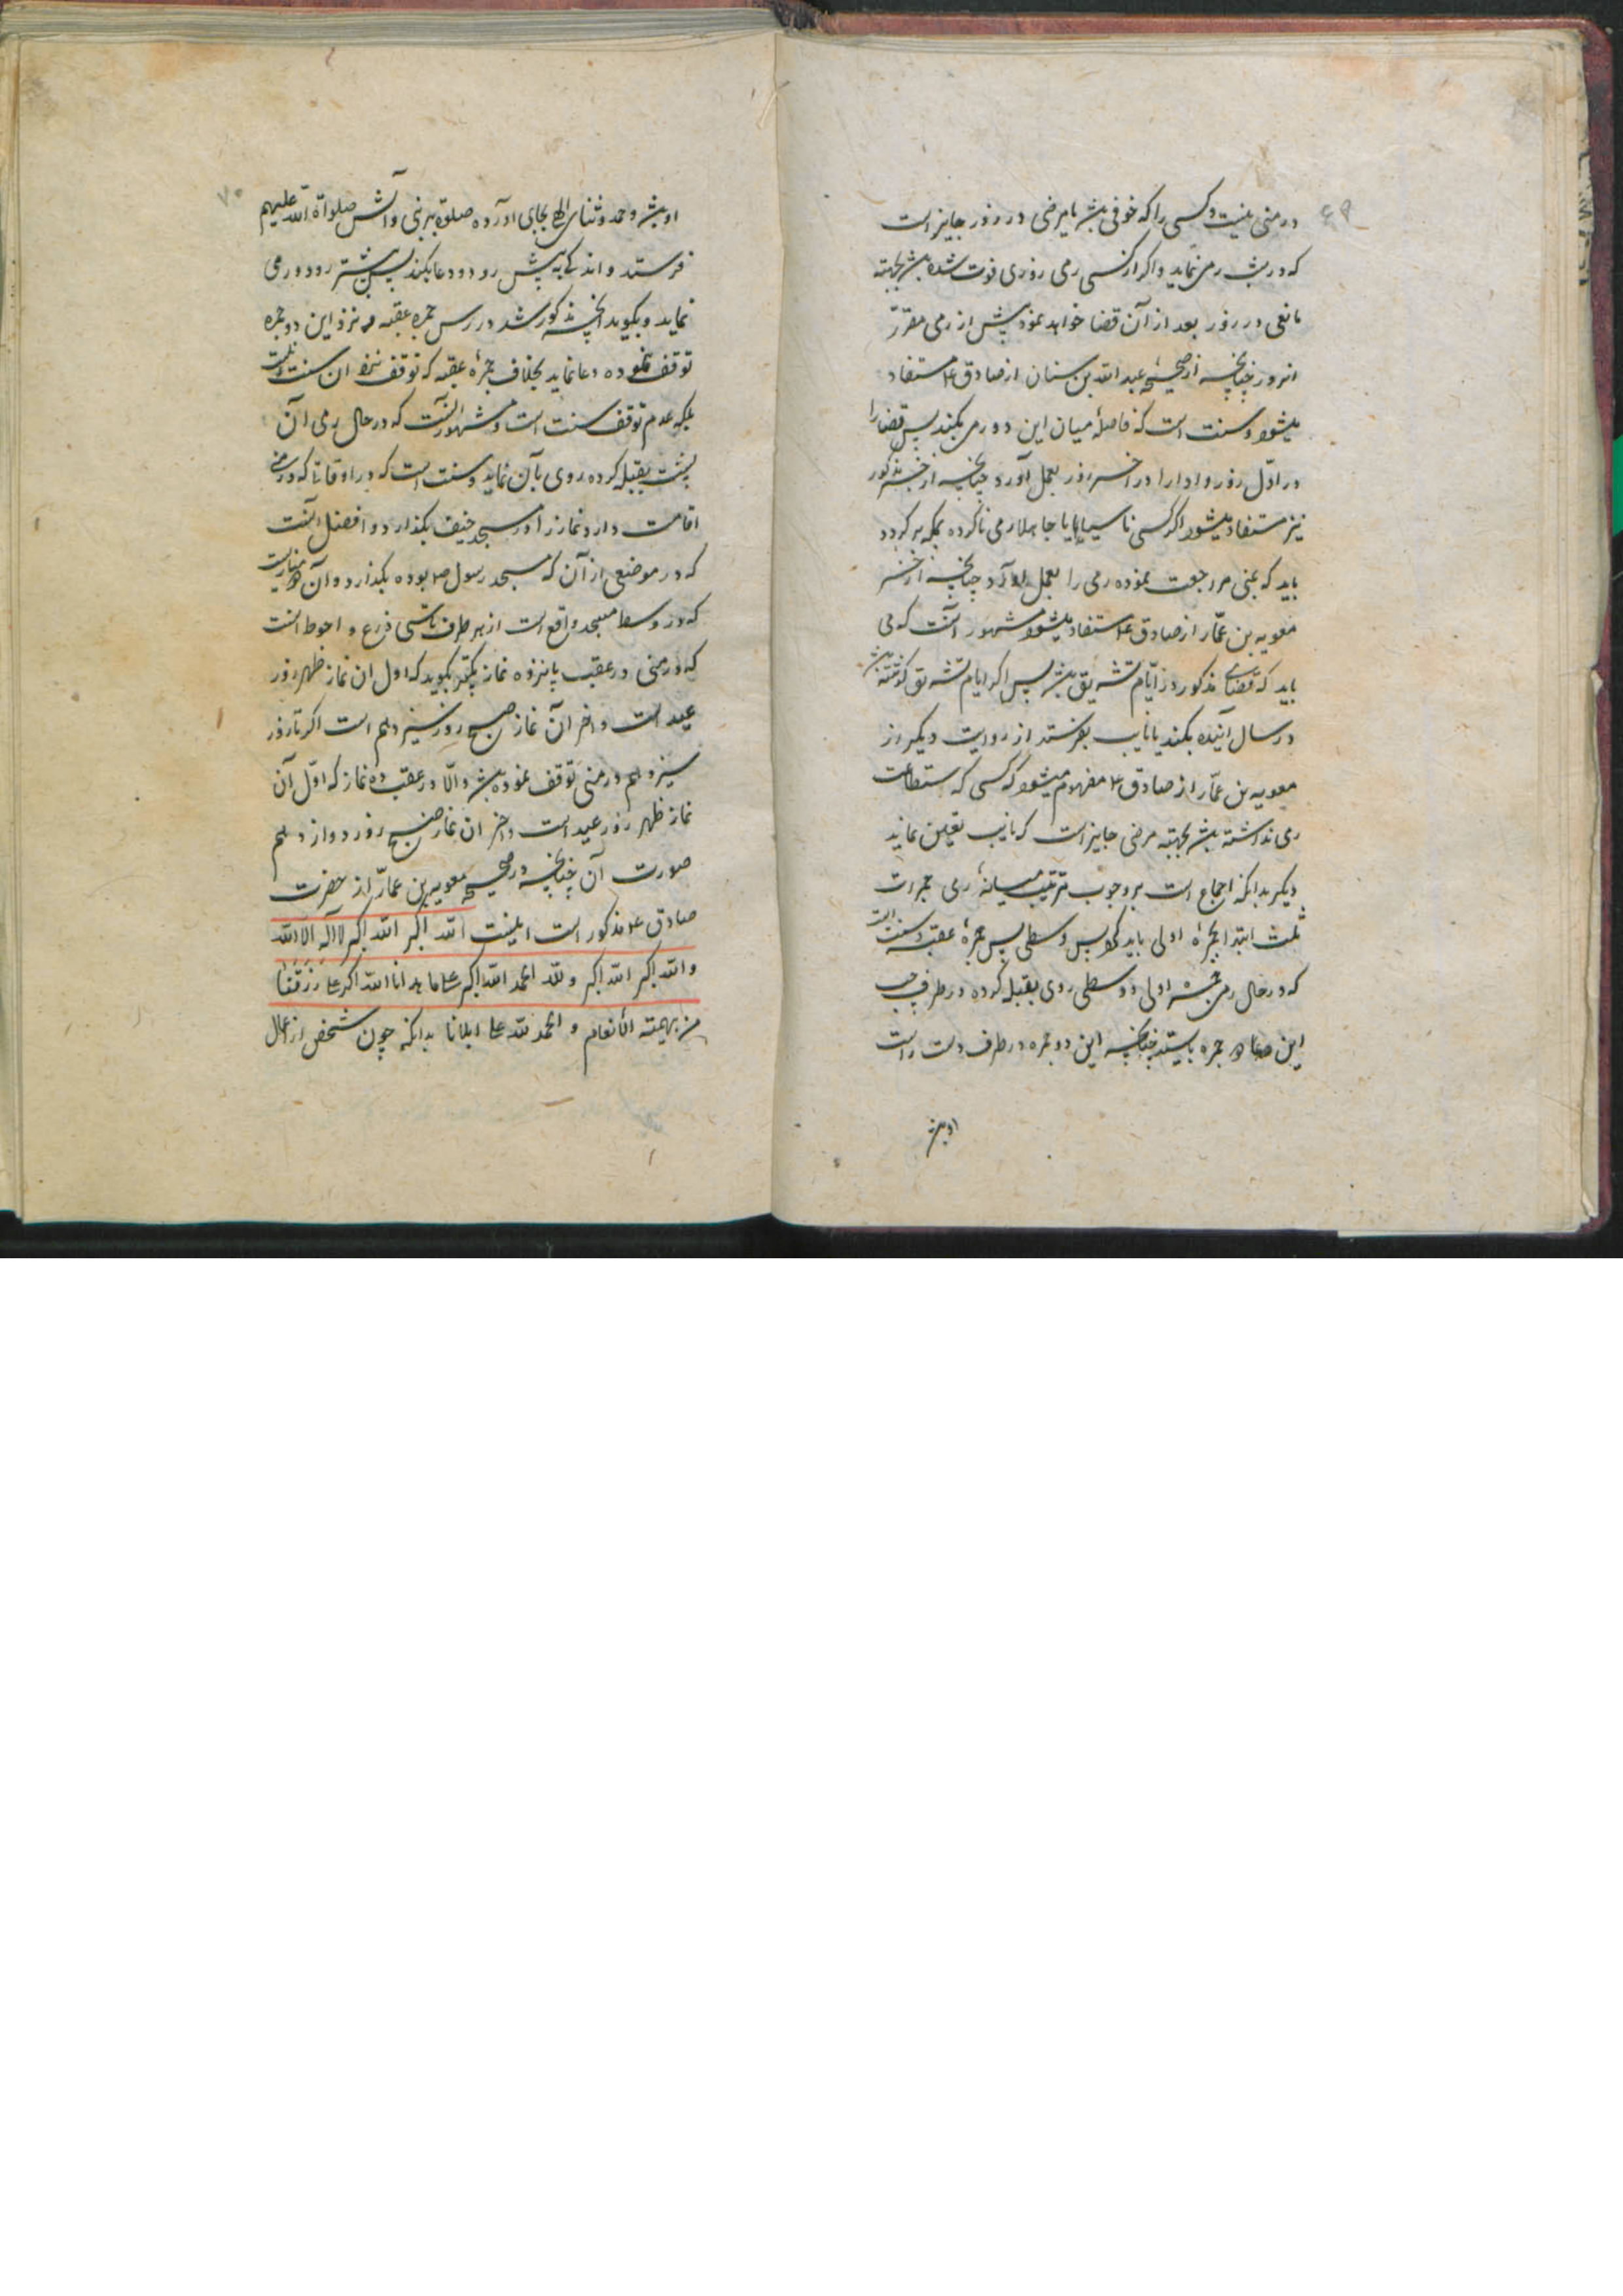 ۶۹
در منی نیست و کسی را که خوفی باشد یا مرضی در روز جایز است
که در شب رمی نماید و اگر از کسی رمی روزی فوت شده باشد بجهته
مانعی در روز بعد از آن قضا خواهد نمود پیش از رمی مقرر
انروز چنانچه از صحیحه عبد الله بن سنان از صادق ع مستفاد
میشود و سنت است که فاصلهٔ میان این دو رمی بکند پس قضا را
در اوّل روز و ادا را در اخر روز بعمل آورد چنانچه از خبر مذکور
نیز مستفاد میشود اگر کسی ناسیا یا جاهلا رمی ناکرده بمکه برگردد
باید که بمنی مراجعت نموده رمی را بعمل آورد چنانچه از خبر
معویه بن عمّار از صادق ع مستفاد میشود و مشهور آنست که می
باید که قضای مذکور در ایّام تشریق باشد پس اگر ایام تشریق گذشته باشد
در سال آینده بکند یا نایب بفرستد از روایت دیگر از
معویه بن عمّار از صادق ع مفهوم میشود که کسی که استطاعت
رمی نداشته باشد بجهته مرضی جایز است که نایب تعیین نماید
دیگر بدانکه اجماع است بر وجوب ترتیب میانهٔ رمی جمرات
ثلث ابتدا بجمرهٔ اولی باید کرد پس وسطی پس جمرهٔ عقبه و سنت است
که در حال رمی جمره اولی و وسطی روی بقبله کرده در طرف چپ
این جمره بایستد چنانچه این دو جمره در طرف دست راست
او باشد
۷۰
او باشد و حمد و ثنای الهی بجای آورده صلوة بر نبی و آلش صلواة الله علیهم
فرستد و اندکی به پیش رود و دعا بکند پس پیشتر رود و رمی
نماید و بگوید آنچه مذکور شد در رمی جمره عقبه و نزد این دو جمره
توقف نموده دعا نماید بخلاف جمرهٔ عقبه که توقف نزد ان سنت نیست
بلکه عدم توقف سنت است و مشهور آنست که در حال رمی آن
پشت بقبله کرده روی بآن نماید و سنت است که در اوقاتی که در منی
اقامت دارد نماز را در مسجد خیف بگذارد و افضل آنست
که در موضعی از آن که مسجد رسول ص بوده بگذارد و آن مناریست
که در وسط مسجد واقع است از هر طرف تا سی ذرع و احوط آنست
که در منی در عقب پانزده نماز تکبیر بگوید که اول ان نماز ظهر روز
عید است و اخر آن نماز صبح روز سیزدهم است اگر تا روز
سیزدهم در منی توقف نموده باشد و الّا در عقب ده نماز که اوّل آن
نماز ظهر روز عید است و اخر ان نماز صبح روز دوازدهم
صورت آن چنانچه در صحیحه معویه بن عمّار از حضرت
صادق ع مذکور است اینست الله اکبر الله اکبر لا اله الا الله
و الله اکبر الله اکبر و لله الحمد الله اکبر علی ما هدانا الله اکبر علی ما رزقنا
من بهیمته الانعام و الحمد لله علی ما ابلانا بدانکه چون شخص از اعمال